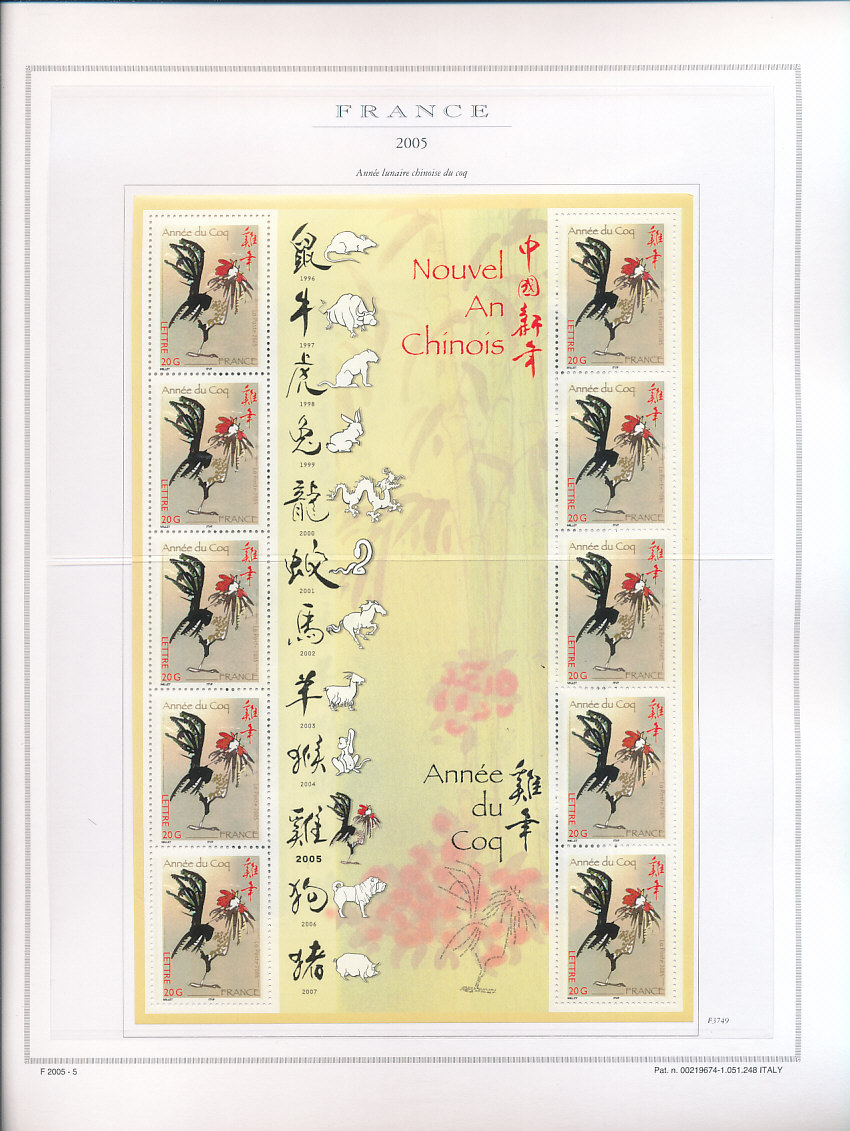 FRANCE
2005
Année lunaire chinoise du coq
Année du Coq
雞年
LETTRE
20G
La Poste 2005
FRANCE
Année du Coq
雞年
LETTRE
20G
La Poste 2005
FRANCE
Année du Coq
雞年
LETTRE
20G
La Poste 2005
FRANCE
Année du Coq
雞年
LETTRE
20G
La Poste 2005
FRANCE
Année du Coq
雞年
LETTRE
20G
La Poste 2005
FRANCE
鼠
1996
牛
1997
虎
1998
兔
1999
龍
2000
蛇
2001
馬
2002
羊
2003
猴
2004
雞
2005
狗
2006
豬
2007
Nouvel
An
Chinois
中國新年
Année
du
Coq
雞年
Année du Coq
雞年
LETTRE
20G
La Poste 2005
FRANCE
Année du Coq
雞年
LETTRE
20G
La Poste 2005
FRANCE
Année du Coq
雞年
LETTRE
20G
La Poste 2005
FRANCE
Année du Coq
雞年
LETTRE
20G
La Poste 2005
FRANCE
Année du Coq
雞年
LETTRE
20G
La Poste 2005
FRANCE
F3749
F 2005 - 5
Pat. n. 00219674-1.051.248 ITALY